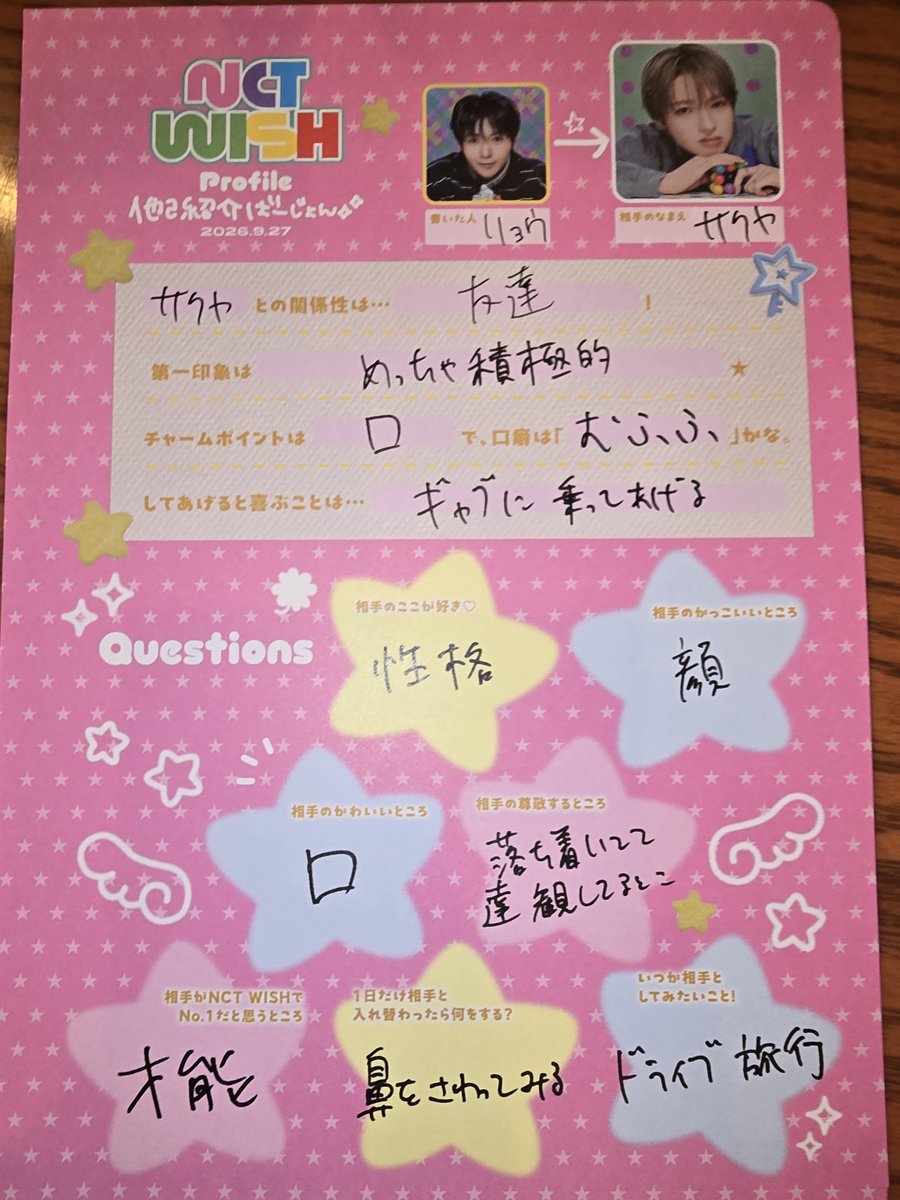 NCT
WISH
Profile
他己紹介ばーじょん
2026.9.27
書いた人 リョウ
相手のなまえ サクヤ
サクヤ との関係性は… 友達 !
第一印象は めっちゃ積極的 ★
チャームポイントは 口 で、口癖は「 むふふ 」かな。
してあげると喜ぶことは… ギャグに乗ってあげる
Questions
相手のここが好き♡
性格
相手のかっこいいところ
顔
相手のかわいいところ
口
相手の尊敬するところ
落ち着いてて
達観してるとこ
相手がNCT WISHで
No.1だと思うところ
才能
1日だけ相手と
入れ替わったら何をする?
鼻をさわってみる
いつか相手と
してみたいこと!
ドライブ旅行